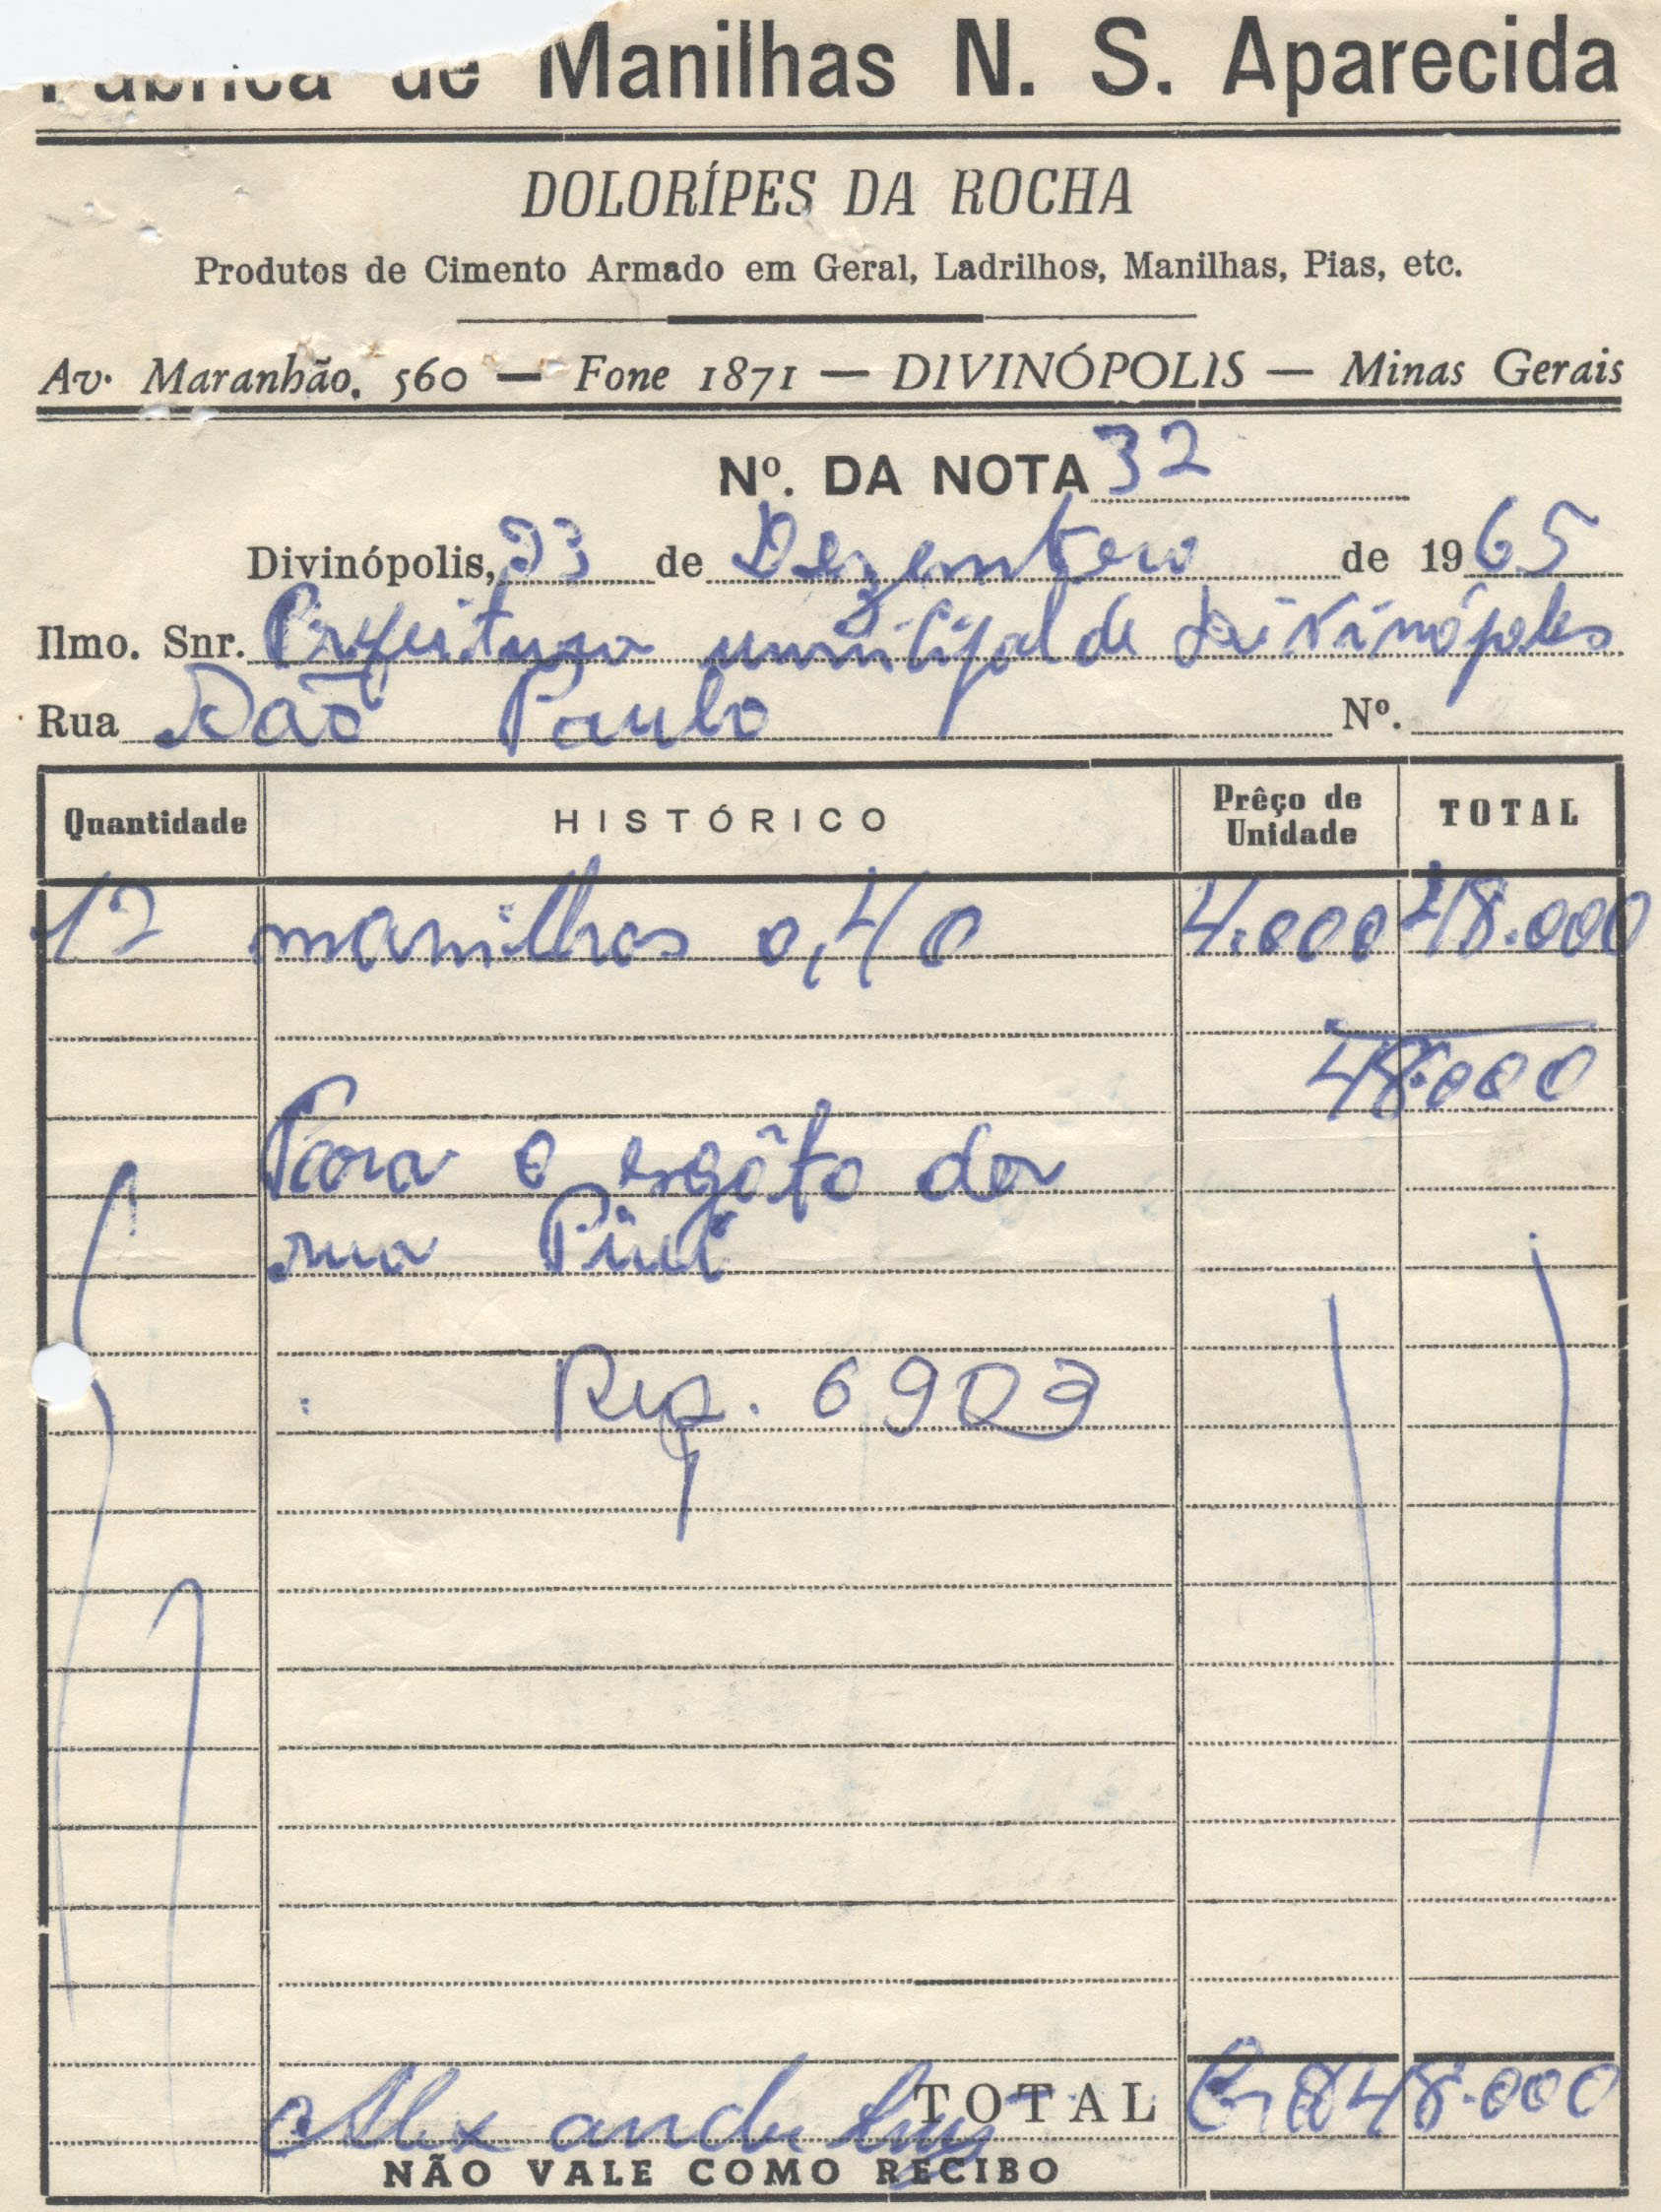 Fábrica de Manilhas N. S. Aparecida
DOLORÍPES DA ROCHA
Produtos de Cimento Armado em Geral, Ladrilhos, Manilhas, Pias, etc.
Av. Maranhão, 560 — Fone 1871 — DIVINÓPOLIS — Minas Gerais
Nº. DA NOTA 32
Divinópolis, 23 de Dezembro de 1965
Ilmo. Snr. Prefeitura municipal de Divinópolis
Rua São Paulo Nº.
Quantidade HISTÓRICO Prêço de Unidade TOTAL
12 manilhas 0,40 4.000 48.000
48.000
Para o esgôto da
rua Piuí
Req. 6903
Alexandre TOTAL Cr$ 48.000
NÃO VALE COMO RECIBO